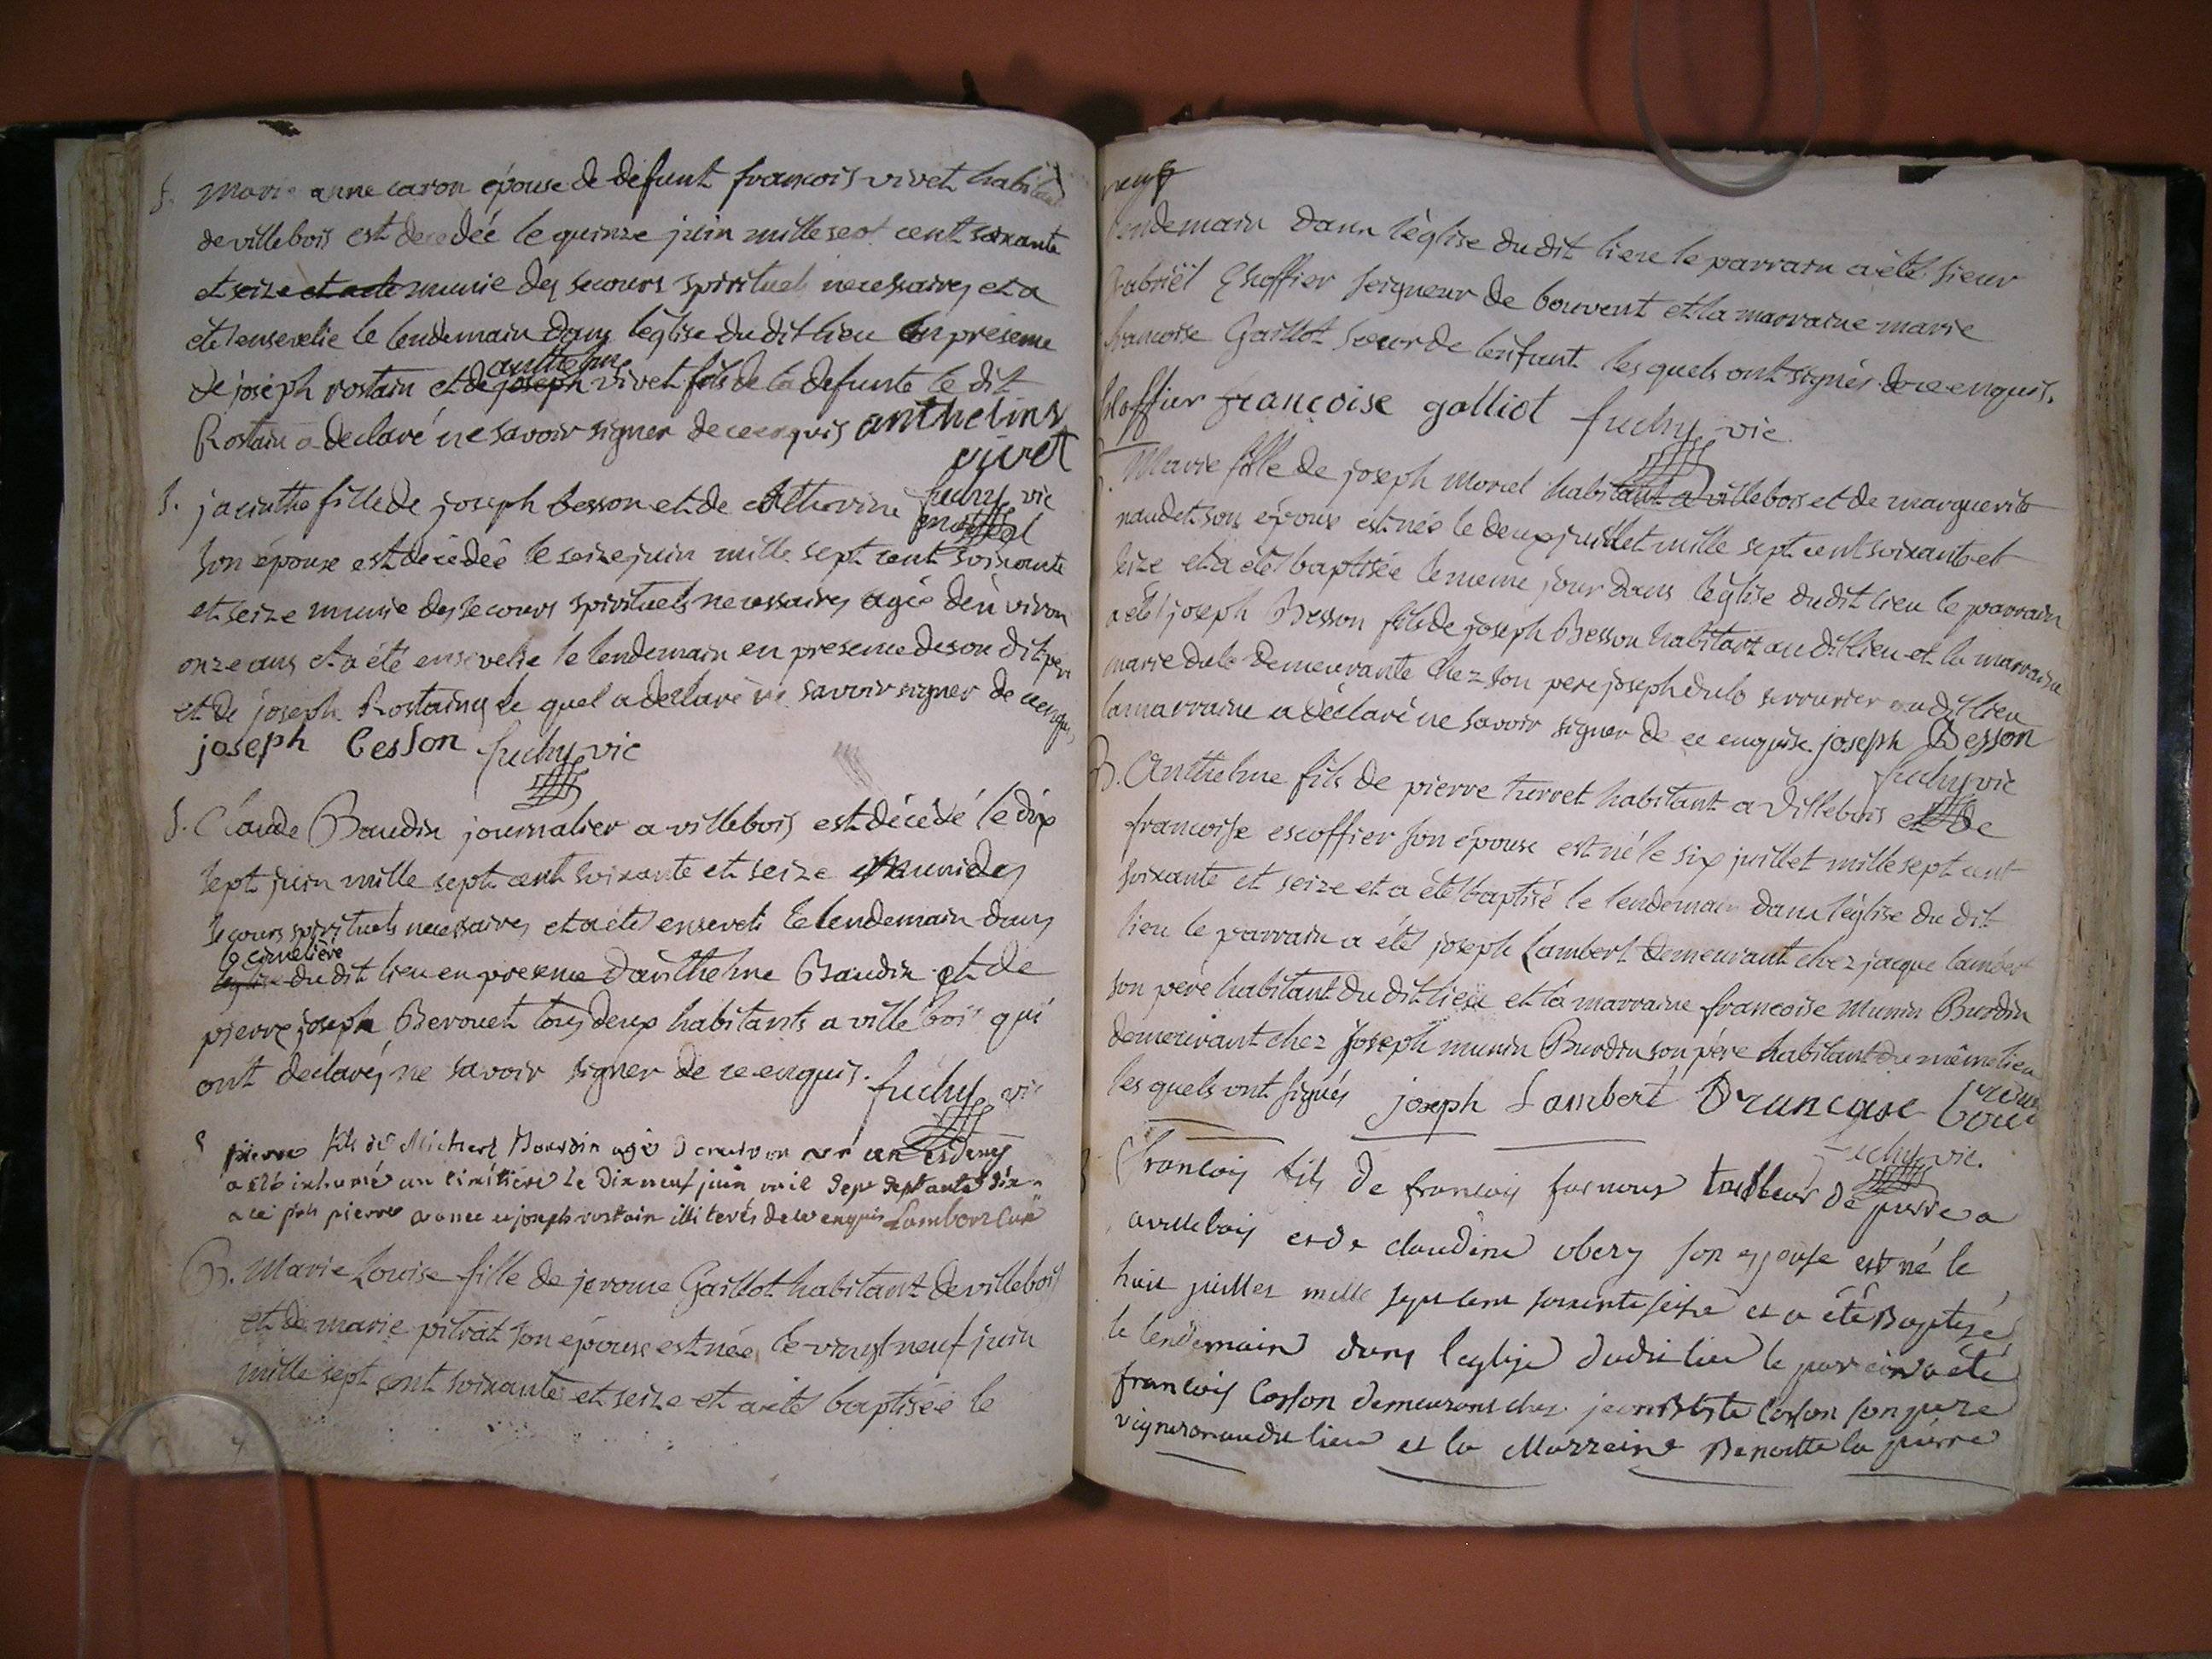 S. Marie anne caron épouse de defunt francois vivet habitant
de villebois est decedée le quinze juin mille sept cent soixante
et seize et a ete munie des secours spirituels necessaires et a
eté ensevelie le lendemain dans l'eglise du dit lieu en présence
anthelme
de joseph rostain et de joseph vivet fils de la defunte le dit
Rostain a declaré ne savoir signer de ce enquis anthelme
vivet
fuchy vic
S. jacinthe fille de joseph besson et de catherine morel
son épouse est décedée le seize juin mille sept cent soixante
et seize munie des secours spirituels necessaires agée d'environ
onze ans et a été ensevelie le lendemain en presence de son dit pere
et de joseph Rostaing le quel a declaré ne savoir signer de ce enquis
joseph besson fuchy vic
S. Claude Baudin journalier a villebois est décédé le dix
sept juin mille sept cent soixante et seize muni des
secours spirituels necessaires et a eté enseveli le lendemain dans
le cimetière
l'eglise du dit lieu en presence d'anthelme Baudin et de
pierre joseph Berouet tous deux habitants a villebois qui
ont declarés ne savoir signer de ce enquis. fuchy vic
S pierre fils de Michel Bourdin agé d'environ un an et demy
a été inhumé au cimitière le dix neuf juin mil sept septante six
a ce pnts pierre et joseph rostain illiterés de ce enquis Lambert Curé
B. Marie Louise fille de jerome Gaillot habitant de villebois
et de marie pitrat son épouse est née le vingt neuf juin
mille sept cent soixante et seize et a eté baptisée le
neuf
lendemain dans l'église du dit lieu le parrain a été sieur
Gabriël Escoffier seigneur de bouvent et la marraine marie
francoise Gaillot soeur de l'enfant les quels ont signés de ce enquis.
Escoffier francoise galliot fuchy vic.
B. Marie fille de joseph Morel habitant a villebois et de marguerite
naudet son épouse est née le deux juillet mille sept cent soixante et
seize et a été baptisée le meme jour dans l'église du dit lieu le parrain
a été joseph Besson fils de joseph Besson habitant au dit lieu et la marraine
marie dulo demeurante chez son pere joseph dulo serrurier au dit lieu
la marraine a déclaré ne savoir signer de ce enquise joseph Besson
fuchy vic
B. Anthelme fils de pierre turret habitant a Villebois et de
francoise escoffier son épouse est né le six juillet mille sept cent
soixante et seize et a été baptisé le lendemain dans l'église du dit
lieu le parrain a été joseph Lambert demeurant chez jacque lambert
son père habitant du dit lieu et la marraine francoise Munin Burdin
demeurant chez joseph munin Burdin son père habitant du même lieu
les quels ont signés joseph Lambert
fuchy vic.
B francois fils de francois furnoux tailleur de pierre a
avillebois et de claudine obery son epouse est né le
huit juillet mille sept cent soixante seize et a été Baptisé
le lendemain dans l'eglise dudit lieu le parrein a été
francois Cosson demeurant chez jean Btiste Cosson son pere
vigneron audit lieu et la Marreine Benoitte la pierre